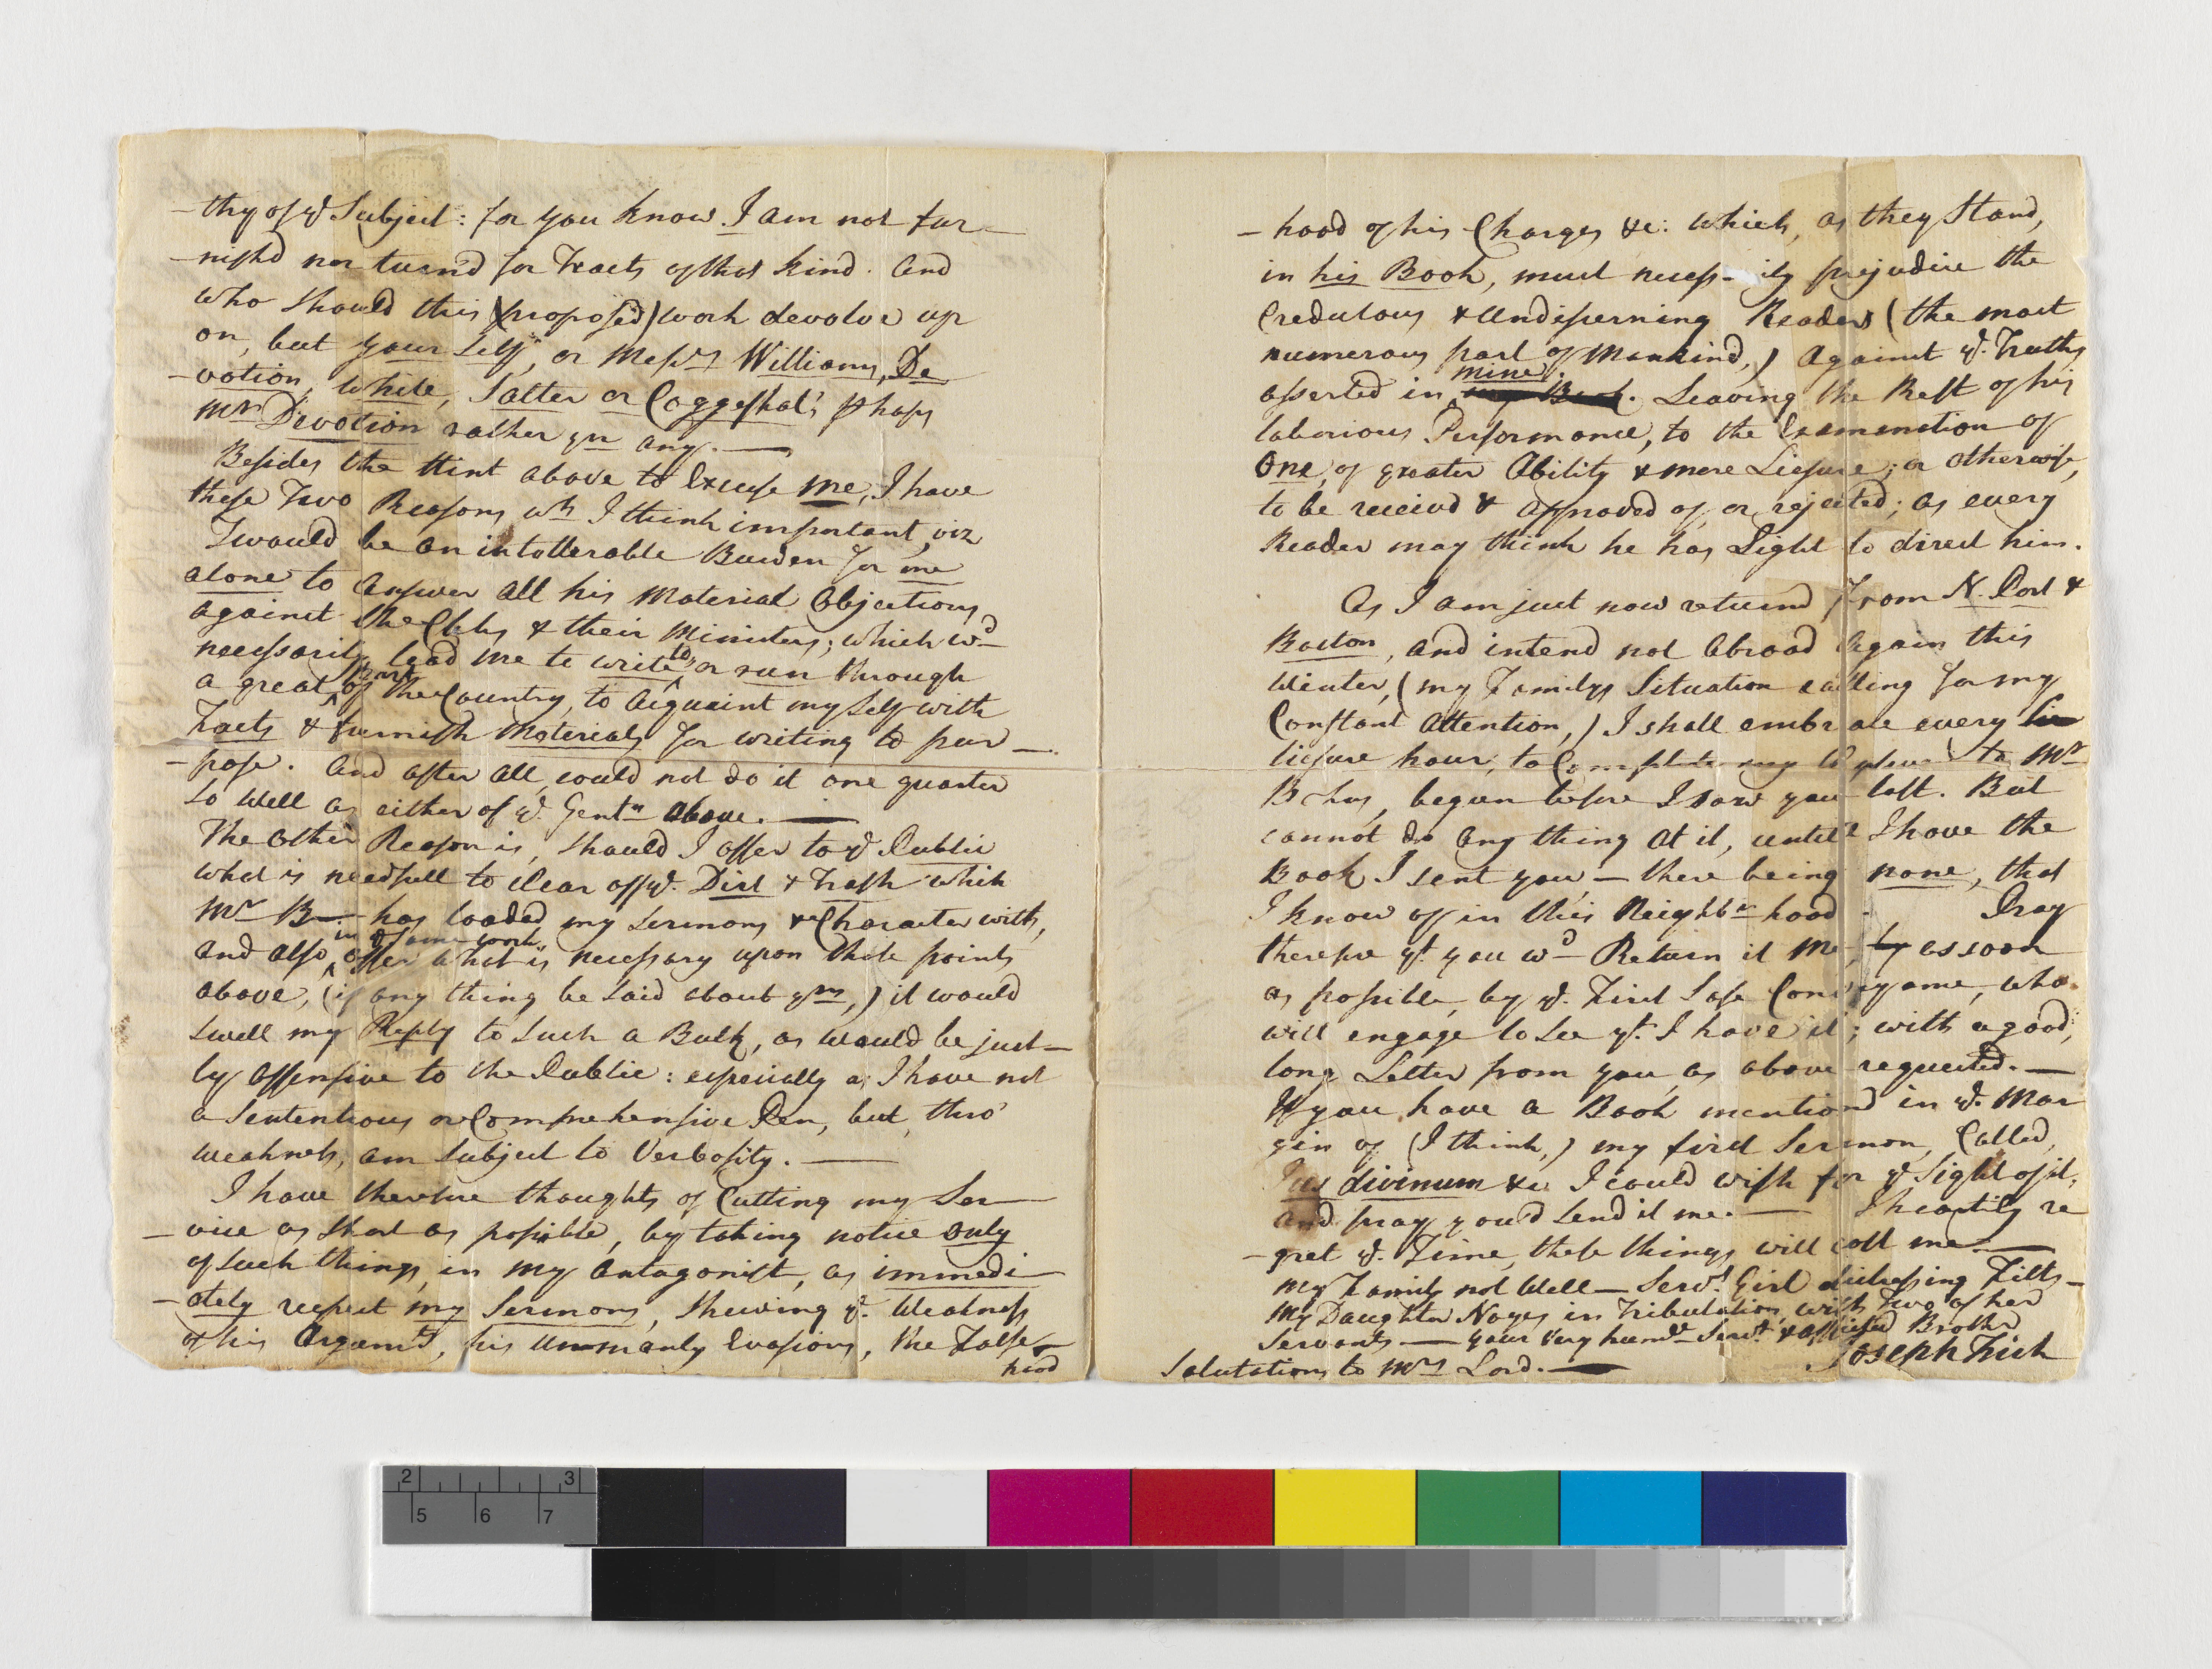 -thy of ye Subject: for you know I am not fur-
-nishd nor turn'd for Tracts of that kind. And
who should this (proposed) work devolve up
on, but your self, or Messrs Williams, De
-votion, White, Salter or Coggeshal; phaps
Mr Devotion rather yn any. —
Besides the Hint above to Excuse me, I have
these Two Reasons wh I think important, viz
Twould be an intollerable Burden for me
alone to Answer all his Material Objections
against the Chhs & their Ministers; which wd
necessarily lead me to write to, or run through
a great part of the Country, to Acquaint my self with
Facts & furnish Materials for writing to pur-
-pose. And after all, could not do it one quarter
so well as either of ye Gentn above. —
The other Reason is, should I offer to ye Public
what is needfull to clear off ye Dirt & Trash which
Mr B— has loaded my Sermons & Character with,
and also, in ye same work, offer what is necessary upon those points
above, (if any thing be said about ym,) it would
swell my Reply to such a Bulk, as would be just-
ly offensive to the Public: especially as I have not
a Sententious or Comprehensive Pen, but, thro'
weakness, am subject to Verbosity. —
I have therefore thoughts of Cutting my Ser
-vice as short as possible, by taking notice only
of such things, in my Antagonist, as immedi
-ately respect my Sermons, shewing ye Weakness
of his Argumts, his unmanly Evasions, the False-
hood
-hood of his Charges &c: which, as they stand,
in his Book, must necess-ily prejudice the
Credulous & Undisserning Readers (the most
numerous part of Mankind,) Against ye Truths
asserted in mine. Leaving the Rest of his
laborious Performance, to the Examination of
One, of greater Ability & more Liesure; or otherwise,
to be receivd & approved of, or rejected; as every
Reader may think he has Light to direct him.
As I am just now returnd from N. Port &
Boston, and intend not abroad Again this
Winter, (my Familys Situation calling for my
Constant Attention,) I shall embrace every
liesure hour, to Complete my to Mr
B— has, begun before I saw you last. But
cannot do any thing at it, untill I have the
Book I sent you, — there being none, that
I know of in this Neighbr hood. Pray
therefore yt you wd Return it me, as soon
as possible, by ye First Safe Conveyance, who
will engage to see yt I have it; with a good,
long Letter from you, as above requested. —
If you have a Book mentiond in ye Mar
gin of (I think,) my first Sermon, Called,
Jus divinum &c I could wish for ye Sight of it,
and pray you'd send it me. — I heartily re
-gret ye Time, these things will cost me —
My Family not Well — Servt Girl distressing Fitts —
My Daughter Noyes in Tribulation, with Two of her
Servants — your very humbe Servt & afflicted Brother
Joseph Fish
Salutations to Mrs Lord. —
2 3
5 6 7